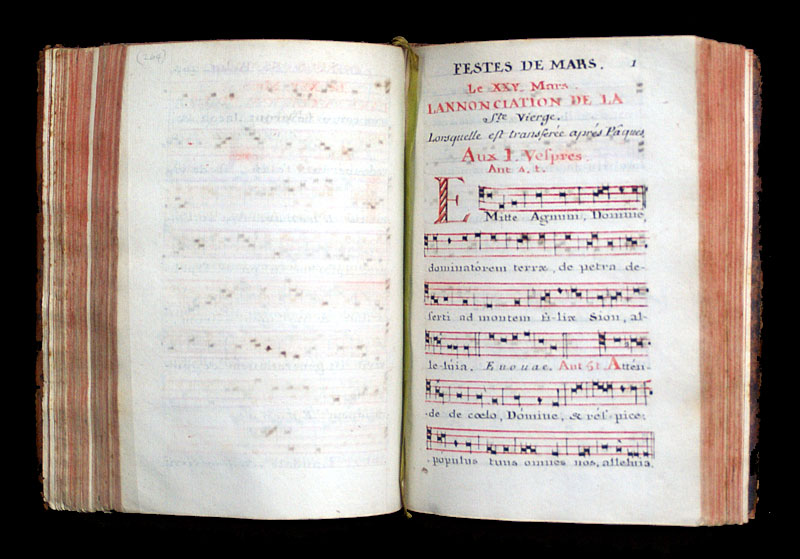 (204)
FESTES DE MARS. 1
Le XXV. Mars.
LANNONCIATION DE LA
Ste Vierge.
Lorsquelle est transferée aprés Pâques
Aux I. Vespres.
Ant a. t.
EMitte Agnum, Domine,
dominatórem terræ, de petra de-
serti ad montem fi-liæ Sion, al-
le-luia. Euouae. Ant 5t Attén-
de de cœlo, Dómine, & rés-pice:
pópulus tuus omnes nos, alleluia.